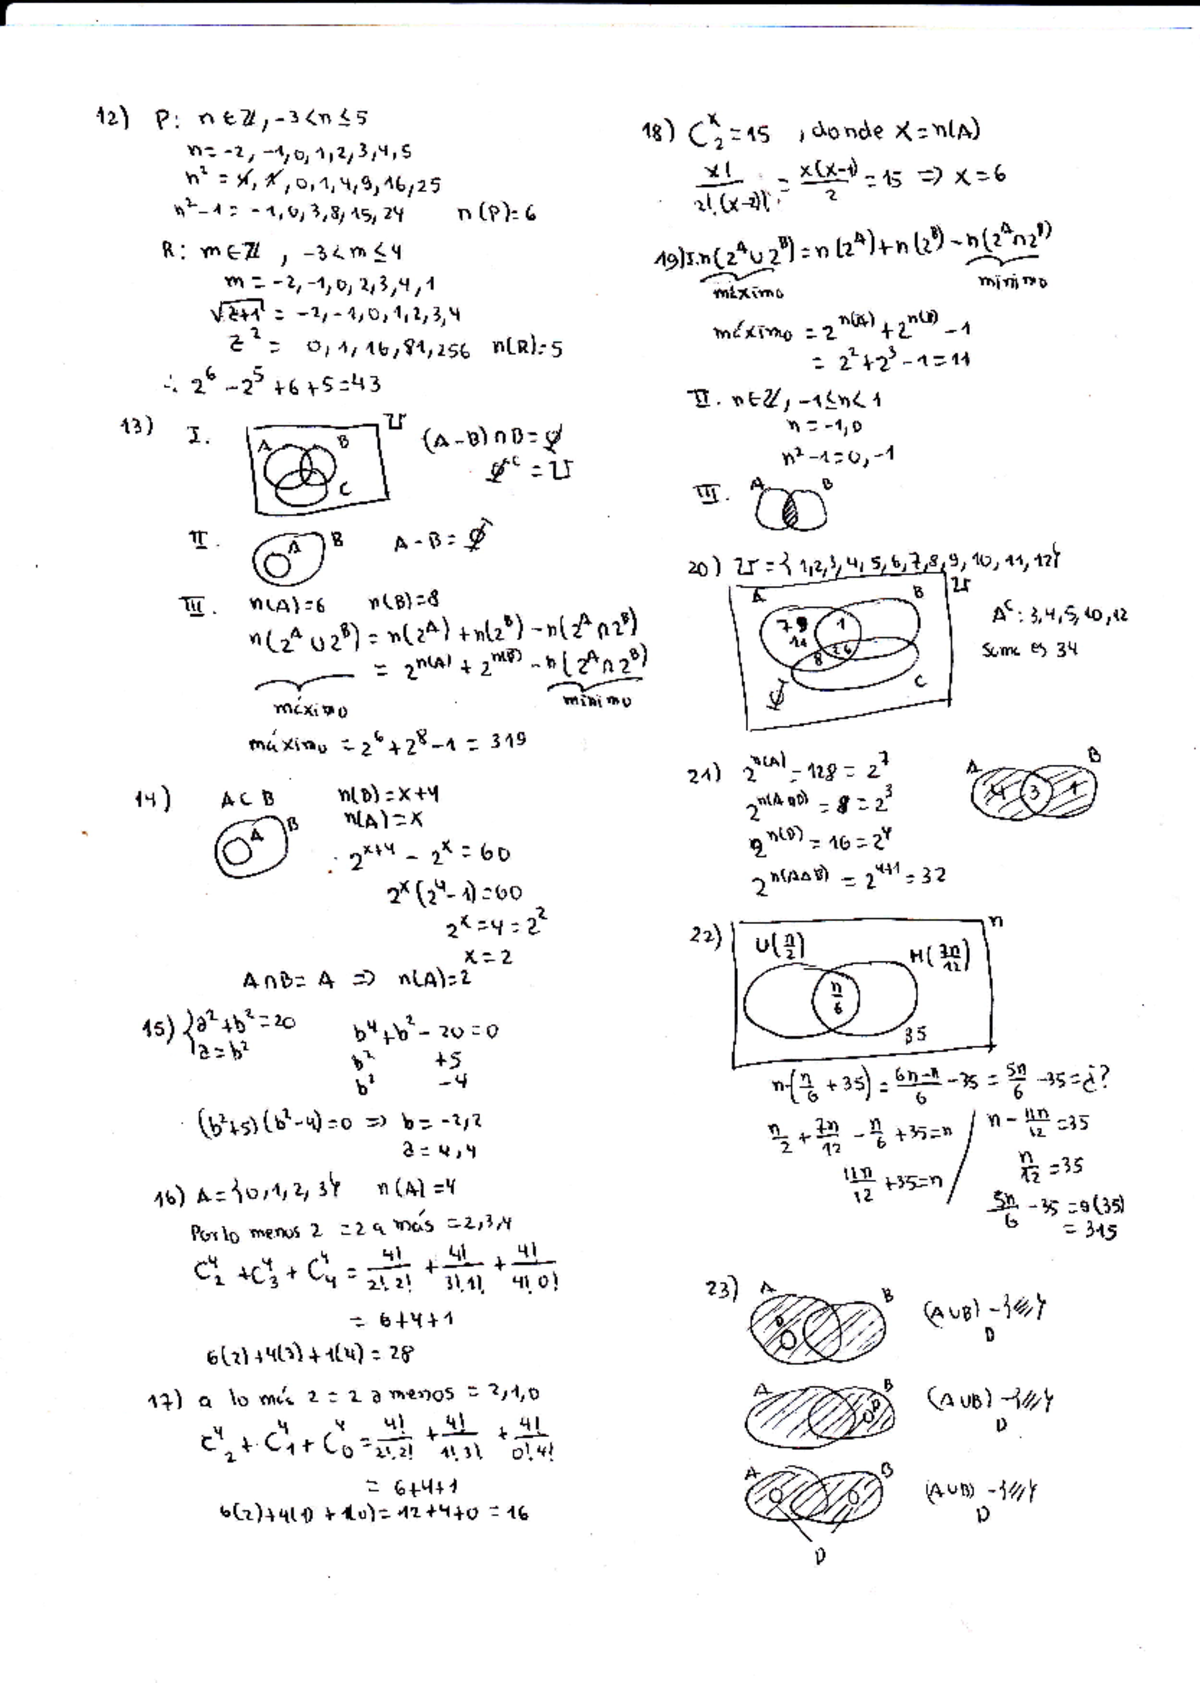 12) P: n∈ℤ, -3<n≤5
n=-2, -1, 0, 1, 2, 3, 4, 5
n² = 4, 1, 0, 1, 4, 9, 16, 25
n²-1 = -1, 0, 3, 8, 15, 24 n(P)=6
R: m∈ℤ, -3<m≤4
m=-2, -1, 0, 2, 3, 4, 1
√z+1 = -2, -1, 0, 1, 2, 3, 4
z² = 0, 1, 16, 81, 256 n(R)=5
∴ 2⁶ - 2⁵ + 6 + 5 = 43
13) I. A B C U (A-B)∩B=φ
φᶜ = U
II. A B A-B=φ
III. n(A)=6 n(B)=8
n(2ᴬ∪2ᴮ) = n(2ᴬ)+n(2ᴮ)-n(2ᴬ∩2ᴮ)
= 2ⁿ⁽ᴬ⁾ + 2ⁿ⁽ᴮ⁾ - n(2ᴬ∩2ᴮ)
máximo mínimo
máximo = 2⁶+2⁸-1 = 319
14) A⊂B n(B)=x+4
A B n(A)=x
2ˣ⁺⁴ - 2ˣ = 60
2ˣ(2⁴-1)=60
2ˣ=4=2²
x=2
A∩B=A ⇒ n(A)=2
15) {a²+b²=20 b⁴+b²-20=0
a=b² b² +5
b² -4
(b²+5)(b²-4)=0 ⇒ b=-2,2
a=4,4
16) A={0,1,2,3} n(A)=4
Por lo menos 2 = 2 a más = 2,3,4
C⁴₂ + C⁴₃ + C⁴₄ = 4!/2!.2! + 4!/3!.1! + 4!/4!.0!
= 6+4+1
6(2)+4(3)+1(4)=28
17) a lo más 2 = 2 a menos = 2,1,0
C⁴₂ + C⁴₁ + C⁴₀ = 4!/2!.2! + 4!/1!.3! + 4!/0!.4!
= 6+4+1
6(2)+4(1)+1(0)=12+4+0=16
18) Cˣ₂=15, donde X=n(A)
x!/2!.(x-2)! = x(x-1)/2 = 15 ⇒ x=6
19) I. n(2ᴬ∪2ᴮ)=n(2ᴬ)+n(2ᴮ)-n(2ᴬ∩2ᴮ)
máximo mínimo
máximo = 2ⁿ⁽ᴬ⁾+2ⁿ⁽ᴮ⁾-1
= 2²+2³-1=11
II. n∈ℤ, -1≤n<1
n=-1,0
n²-1=0,-1
III. A B
20) U={1,2,3,4,5,6,7,8,9,10,11,12}
A B U
7 9 1 Aᶜ: 3,4,5,10,12
11 2 6 Suma es 34
8
φ C
21) 2ⁿ⁽ᴬ⁾=128=2⁷ A B
2ⁿ⁽ᴬ∩ᴮ⁾=8=2³ 4 3 1
2ⁿ⁽ᴮ⁾=16=2⁴
2ⁿ⁽ᴬΔᴮ⁾=2⁴⁺¹=32
22) U(n/2) H(7n/12) n
n/6
35
n-(n/6+35)=6n-n/6-35=5n/6-35=¿?
n/2+7n/12-n/6+35=n / n-11n/12=35
11n/12+35=n n/12=35
5n/6-35=9(35)
=315
23) A B (A∪B)-{///}
D D
A B (A∪B)-{///}
D D
A B (A∪B)-{///}
D
D